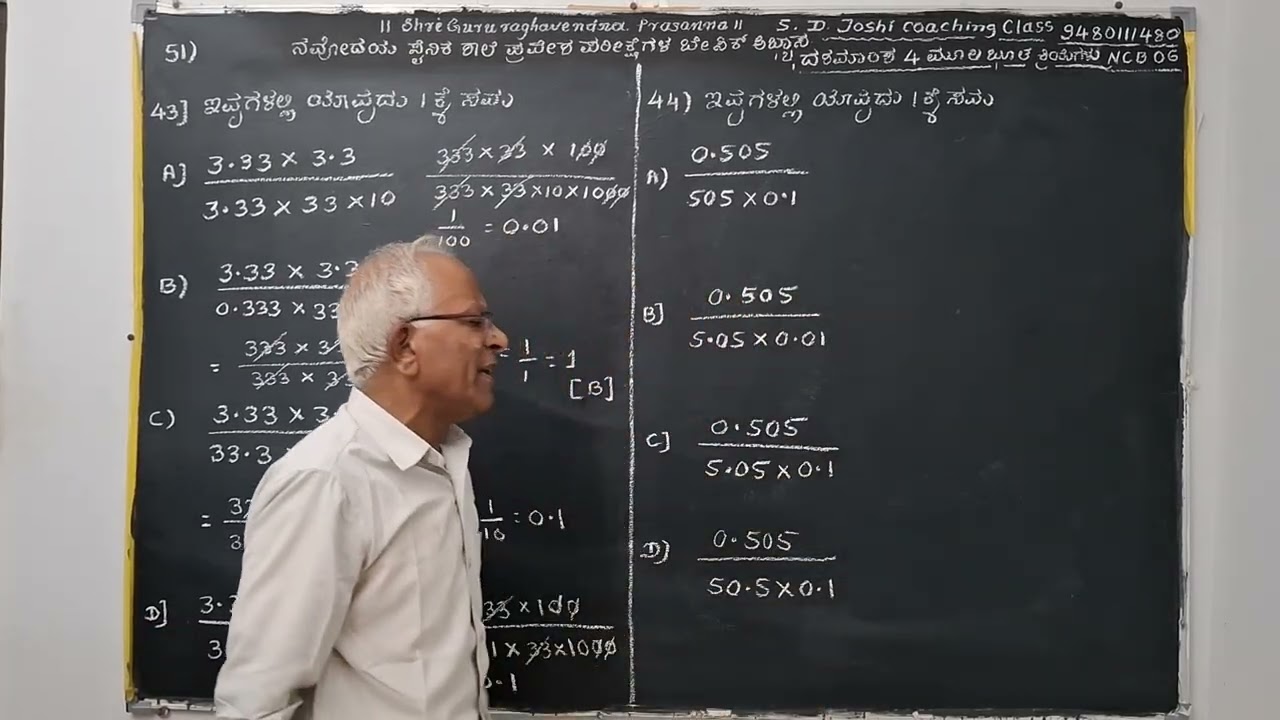 || Shre Gururaghavendra Prasanna ||
S. D. Joshi Coaching Class 9480111480
51)
ನವೋದಯ ಸೈನಿಕ ಶಾಲೆ ಪ್ರವೇಶ ಪರೀಕ್ಷೆಗಳ ಬೇಸಿಕ್
ದಶಮಾಂಶ 4 ಮೂಲಭೂತ ಕ್ರಿಯೆಗಳು NCB 06
43] ಇವುಗಳಲ್ಲಿ ಯಾವುದು 1 ಕ್ಕೆ ಸಮ
A] 3.33 × 3.3
3.33 × 33 × 10
333 × 33 × 100
333 × 33 × 10 × 1000
1
100 = 0.01
B) 3.33 × 3.3
0.333 × 33
= 333 ×
333 ×
= 1
1 = 1
[B]
C) 3.33 ×
33.3
=
1
10 = 0.1
D]
33 × 100
1 × 33 × 1000
44) ಇವುಗಳಲ್ಲಿ ಯಾವುದು 1 ಕ್ಕೆ ಸಮ
A) 0.505
505 × 0.1
B] 0.505
5.05 × 0.01
C] 0.505
5.05 × 0.1
D] 0.505
50.5 × 0.1